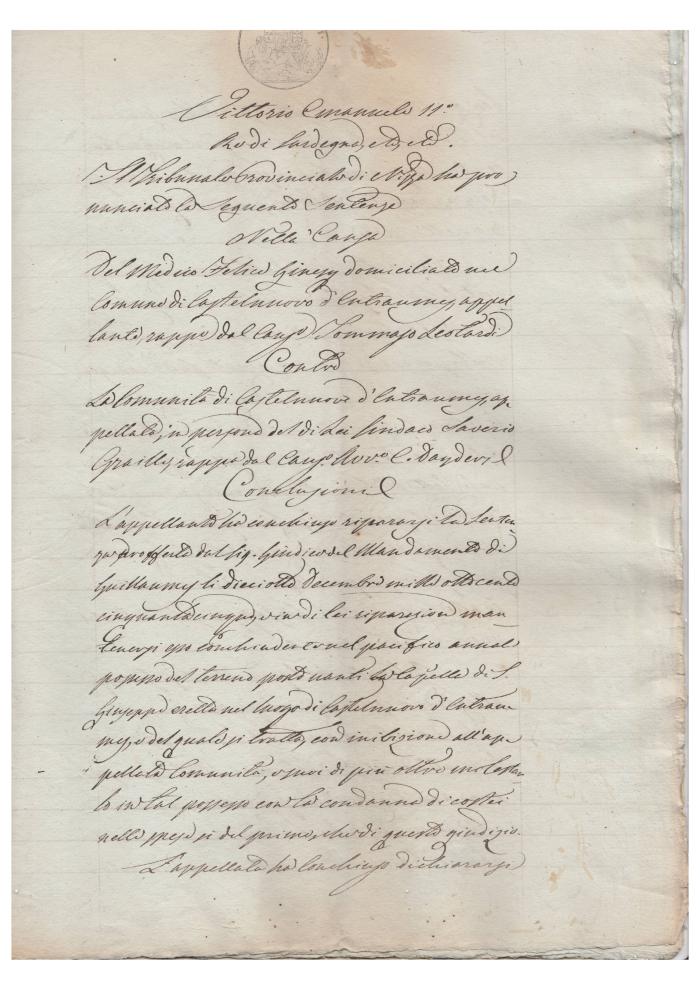 Vittorio Emanuele II°
Re di Sardegna, etc, etc.
Il Tribunale Provinciale di Nizza ha pro
nunciato la seguente sentenza
Nella Causa
Del Medico Felice Ginesy domiciliato nel
Comune di Castelnuovo d'Entraunes, appel
lante, rapp.to dal Caus.o Tommaso Leotardi
Contro
La Comunità di Castelnuovo d'Entraunes, ap
pellata, in persona del di Lei Sindaco Saverio
Grailly, rapp.to dal Caus.o Avv.o C.
Conclusioni
L'appellante ha conchiuso ripararsi la Senten
za profferta dal Sig. Giudice del Mandamento di
Guillaumes li dieciotto Decembre mille ottocento
cinquantacinque, e in di lei riparazione man
tenersi esso conchiudente nel pacifico annale
possesso del terreno posto nanti la Capella di S.
Giuseppe eretta nel luogo di Castelnuovo d'Entrau
nes, e del quale si tratta, con inibizione all'ap
pellata Comunità, e suoi di più oltre molestar
lo in tal possesso con la condanna di costei
nelle spese sì del primo, che di questo giudizio.
L'appellata ha conchiuso dichiararsi